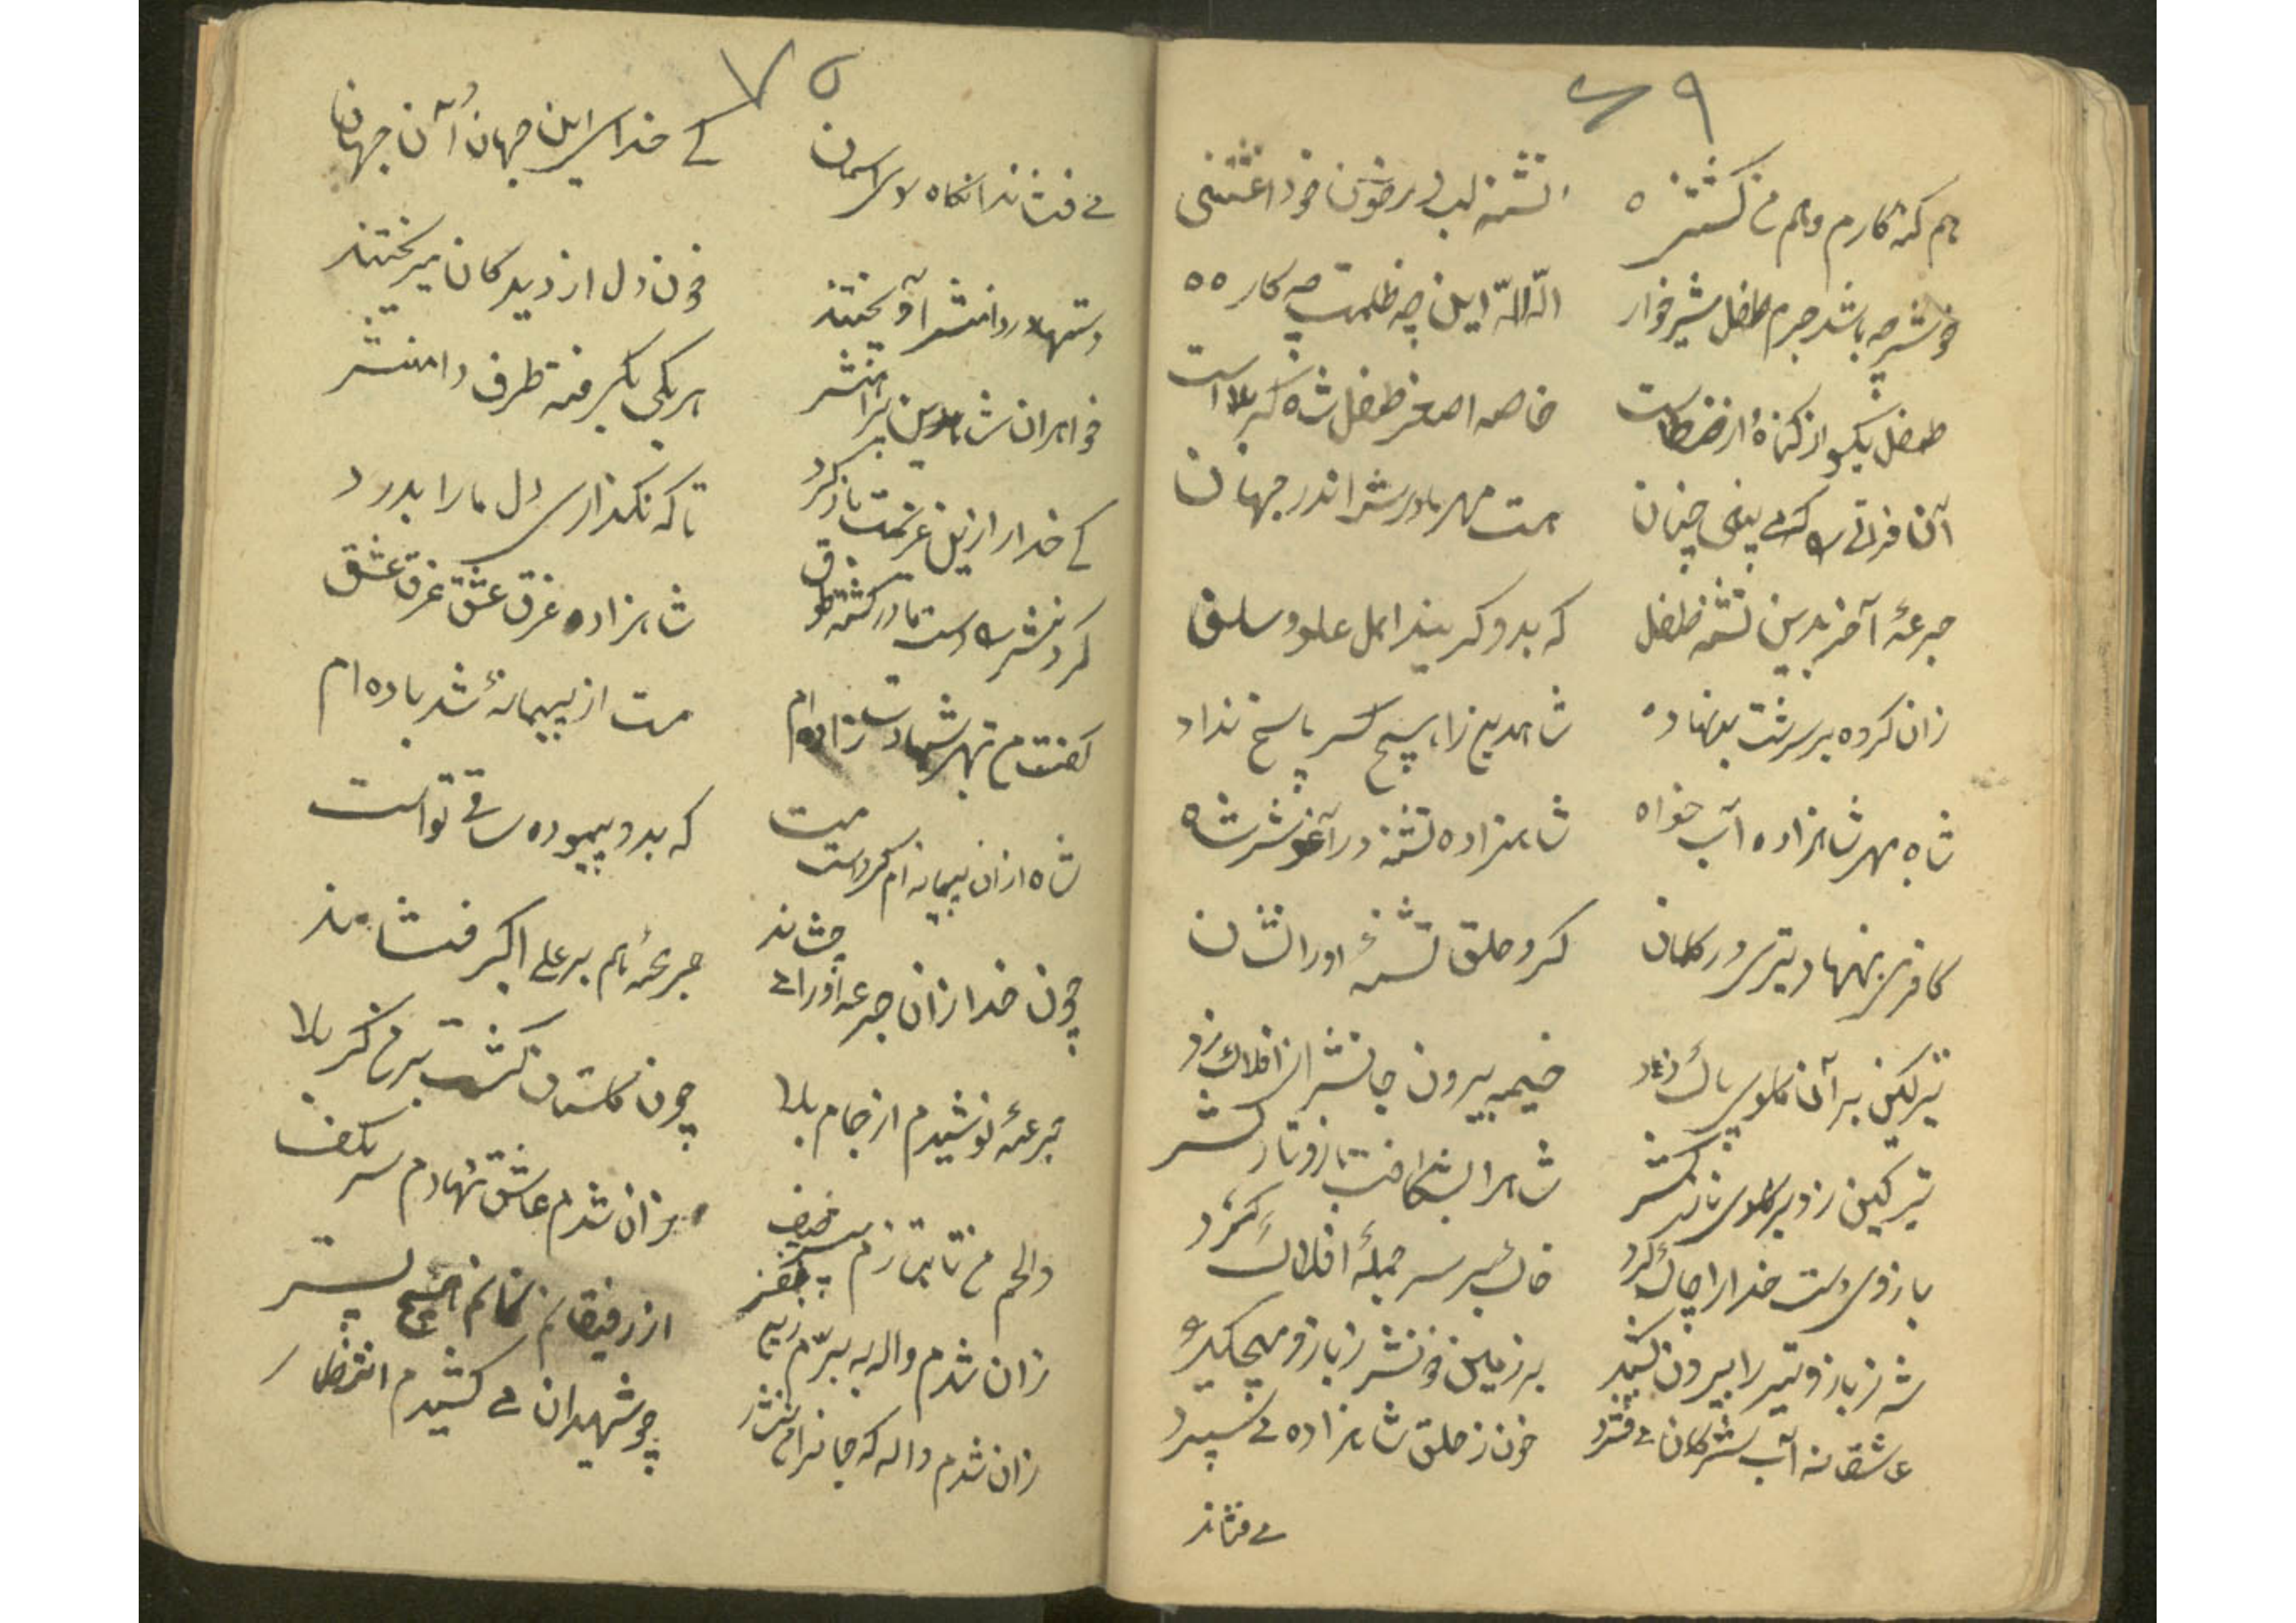 ۶۹
هم گنه کارم و هم من کشتنی
تشنه لب در خون خود آغشتنی
خود چه باشد جرم طفل شیرخوار
الله الله این چه ظلمت چه کار
طفل یکسو از گناه و از خطاست
خاصه اصغر طفل شاه کربلاست
آن فراتی را که می بینی چنان
هست مهر مادرش اندر جهان
جرعهٔ آخر بدین تشنه طفل
که بدو گریند اهل علو و سفل
زان گروه بر سرشت بدنهاد
شاهدین را هیچ کس پاسخ نداد
شاه بهر شاهزاده آب خواه
شاهزاده تشنه در آغوش شاه
کافری بنهاد تیری در کمان
کرد حلق تشنهٔ او را نشان
تیر کین بر آن گلوی پاک زد
خیمه بیرون جانش از افلاک زد
تیر کین زد بر گلوی نازکش
شاه را بشکافت بازو تارکش
بازوی دست خدا را چاک کرد
خاک بر سر جملهٔ افلاک کرد
شه ز بازو تیر را بیرون کشید
بر زمین خونش ز بازو میچکید
عاشقانه آب مشرکان می فشرد
خون ز حلق شاهزاده می سپرد
می فشاند
۷۰
می فشاند آنگاه سوی آسمان
کی خدای این جهان و آن جهان
دستها در دامنش آویختند
خون دل از دیدگان میریختند
خواهران شاه دین پیرامنش
هر یکی بگرفته طرف دامنش
کی خدا را زین عزیمت باز گرد
تا که نگذاری دل ما را بدرد
گردنش را دست مادر گشته طوق
شاهزاده غرق عشق غرق عشق
گفت من بهر شهادت زاده ام
مست از پیمانهٔ شد باده ام
شاه از آن پیمانه ام کردست مست
که بدو پیموده ساقی تو است
چون خدا زان جرعه او را می چشاند
جرعهٔ هم بر علی اکبر فشاند
جرعهٔ نوشیدم از جام بلا
چون گلستان گشت بر من کربلا
والهم من تا بتازم
زان شدم عاشق نهادم سر بکف
زان شدم واله به بیّم
از رفیقانم نمانم هیچ پس
زان شدم واله که جانرا من نثار
چو شهیدان می کشیدم انتظار